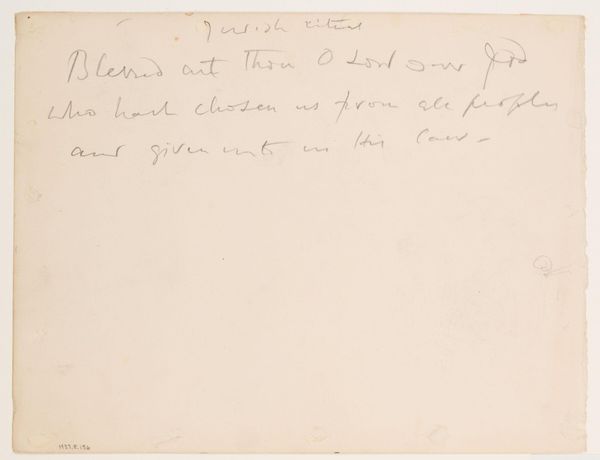 Jewish ritual
Blessed art Thou O Lord our God
who hast chosen us from all peoples
and given unto us His law -